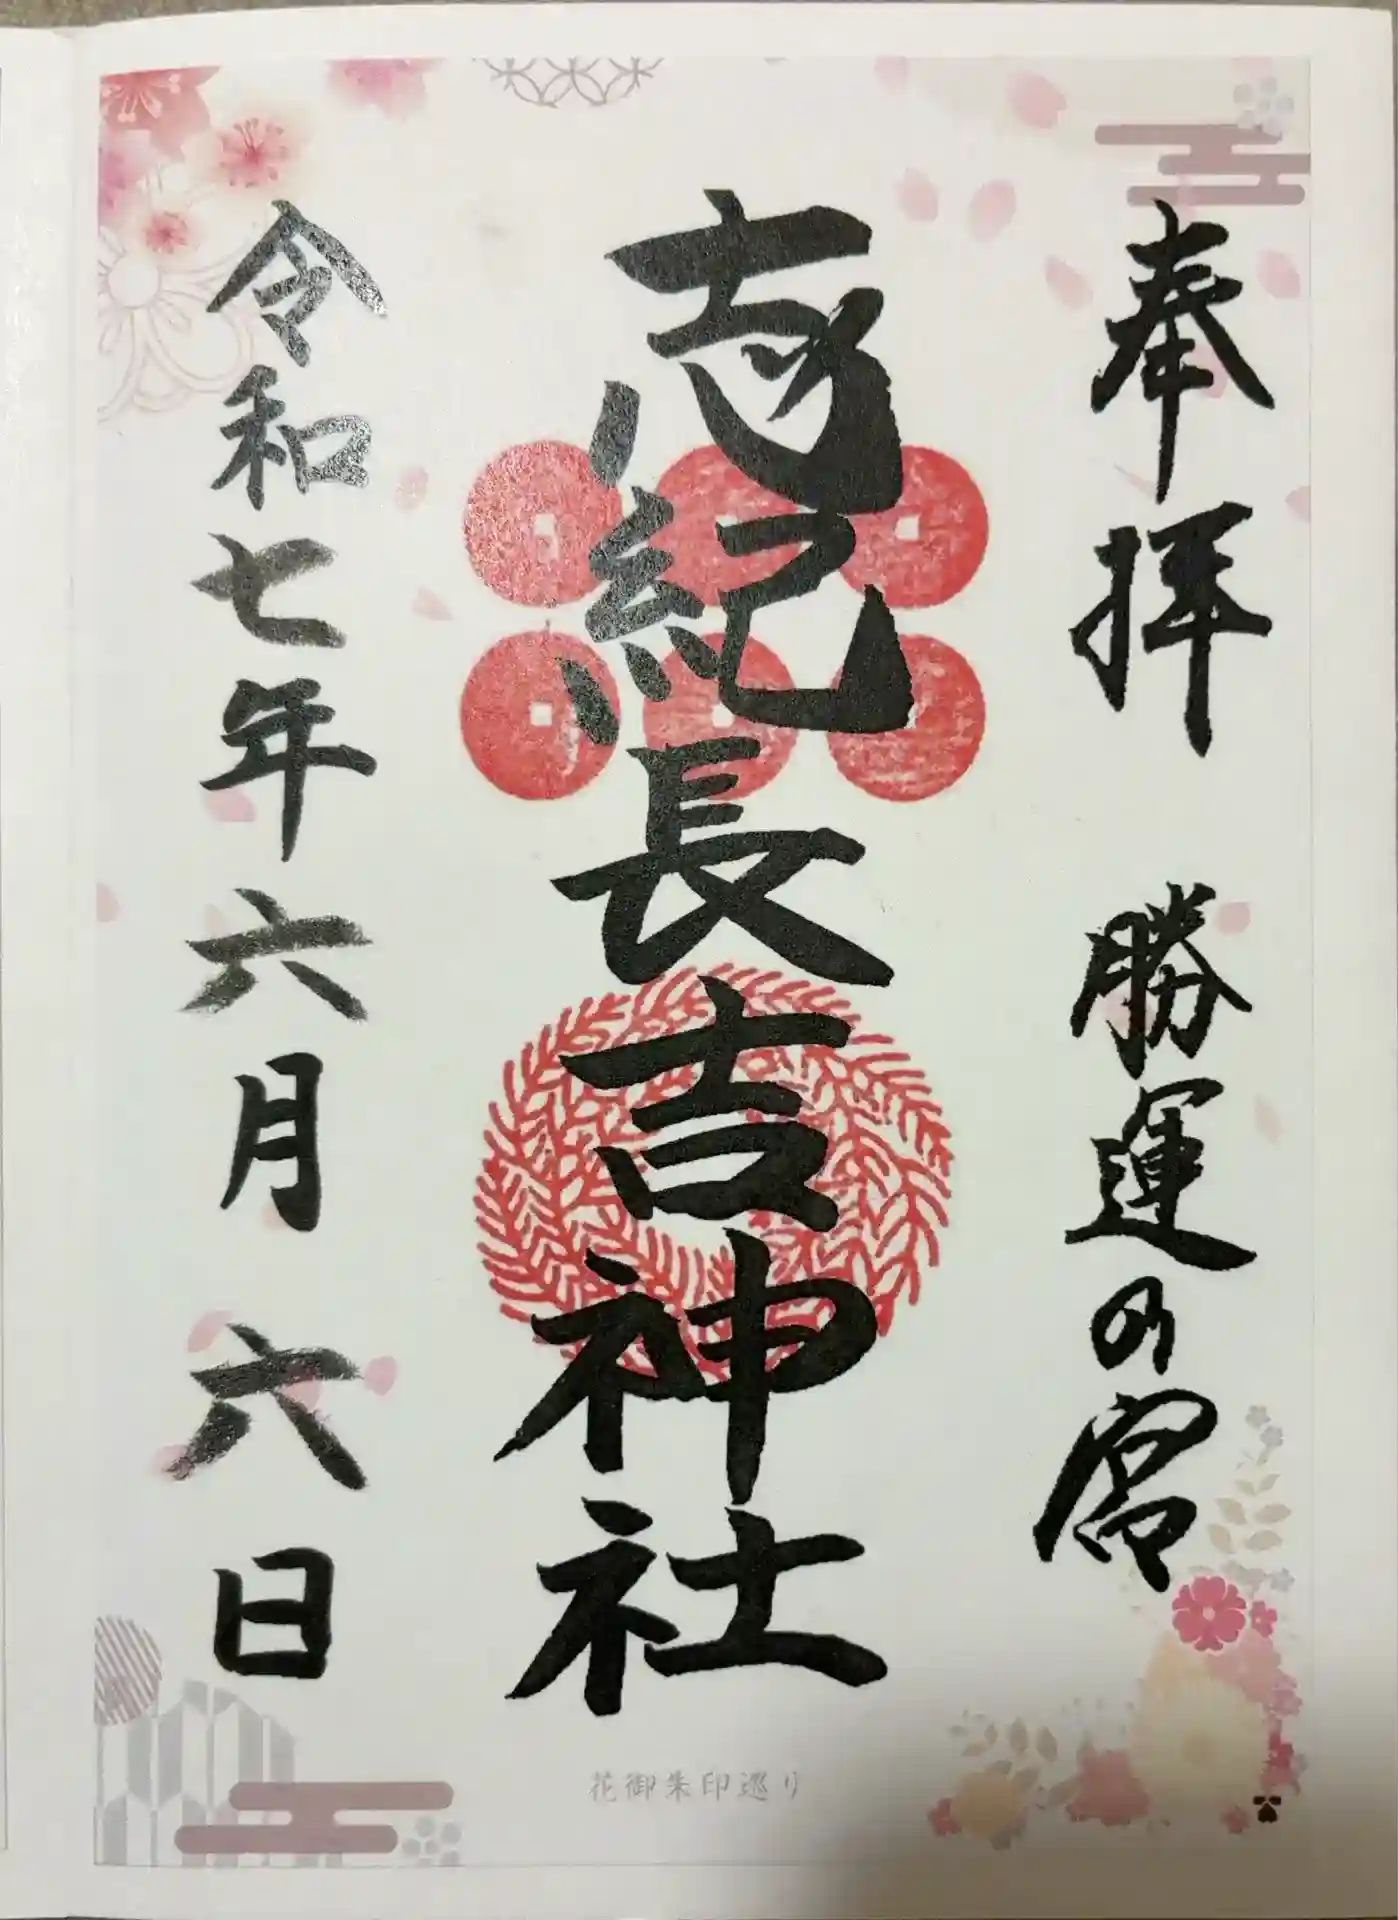 奉拝 勝運の宮
志紀長吉神社
令和七年六月六日
花御朱印巡り